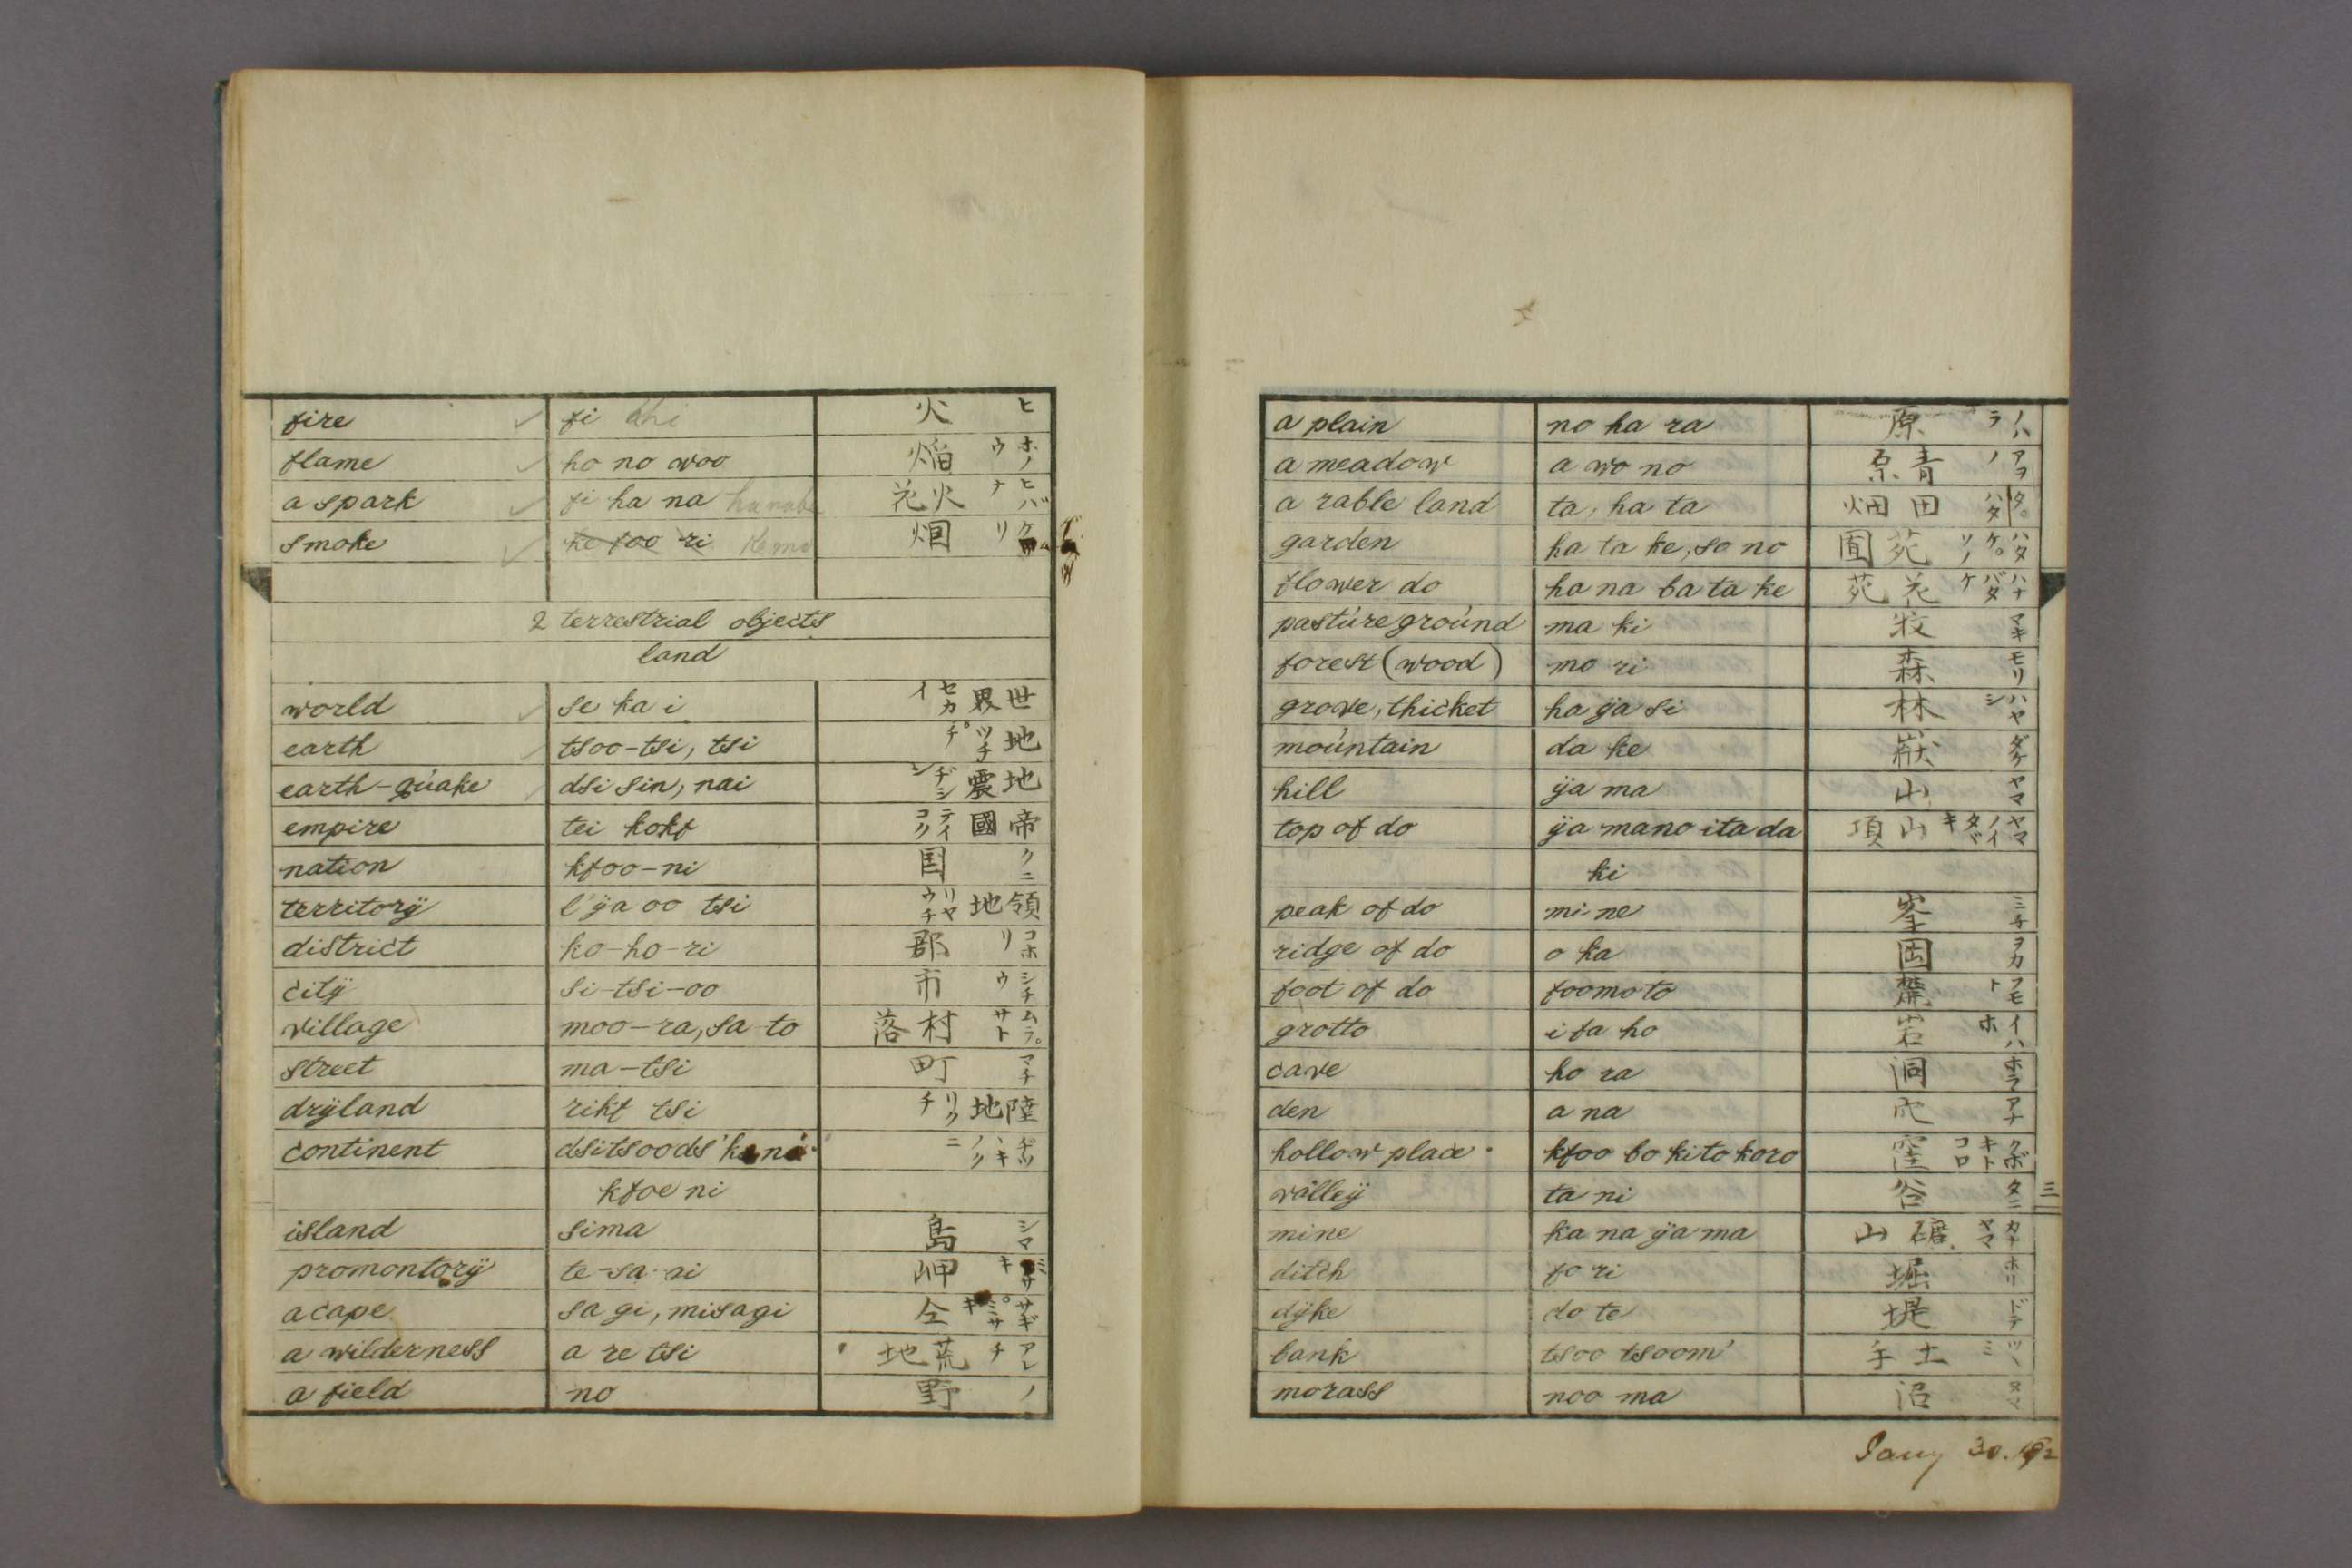 fire fi 火 ヒ
flame ho no woo 焔 ホノウ
a spark fi ha na 花火 ヒバナ
smoke ke foo ri 烟 ケ リ
2 terrestrial objects
land
world se ka i 世界 セカイ
earth tsoo-tsi, tsi 地 ツチ。チ
earth-quake dsi sin, nai 地震 ヂシシ
empire tei kokf 帝國 テイコク
nation kfoo-ni 国 クニ
territorÿ l'ÿa oo tsi 領地 リヤウチ
district ko-ho-ri 郡 コホリ
citÿ si-tsi-oo 市 シチウ
village moo-ra, sa to 村落 ムラ。サト
street ma-tsi 町 マチ
drÿland rikf tsi 陸地 リクチ
continent dsitsoods'
kfoe ni
island sima 島 シマ
promontorÿ 岬
a cape sa gi, misagi 仝 サギ。ミサキ
a wilderness a re tsi 荒地 アレチ
a field no 野 ノ
a plain no ha ra 原 ノハラ
a meadow a wo no 青原 アヲノ
a rable land ta, ha ta 田畑 タ。ハタ
garden ha ta ke, so no 苑囿 ハタケ。ソノ
flower do ha na ba ta ke 花苑 ハナバタケ
pasture ground ma ki 牧 マキ
forest (wood) mo ri 森 モリ
grove, thicket ha ÿa si 林 ハヤシ
mountain da ke 嶽 ダケ
hill ÿa ma 山 ヤマ
top of do ÿa mano ita da 山頂 ヤマノイタヾキ
ki
peak of do mi ne 峯 ミ子
ridge of do o ka 岡 ヲカ
foot of do foomoto 麓 フモト
grotto i fa ho 岩 イハホ
cave ho ra 洞 ホラ
den a na 穴 アナ
hollow place kfoo bo ki to koro 窪 クボキトコロ
vallëy ta ni 谷 タニ
三
mine ka na ÿa ma 礦山 カナヤマ
ditch fo ri 堀 ホリ
dÿke do te 堤 ドテ
bank tsoo tsoom' 土手 ツヽミ
morass noo ma 沼 ヌマ